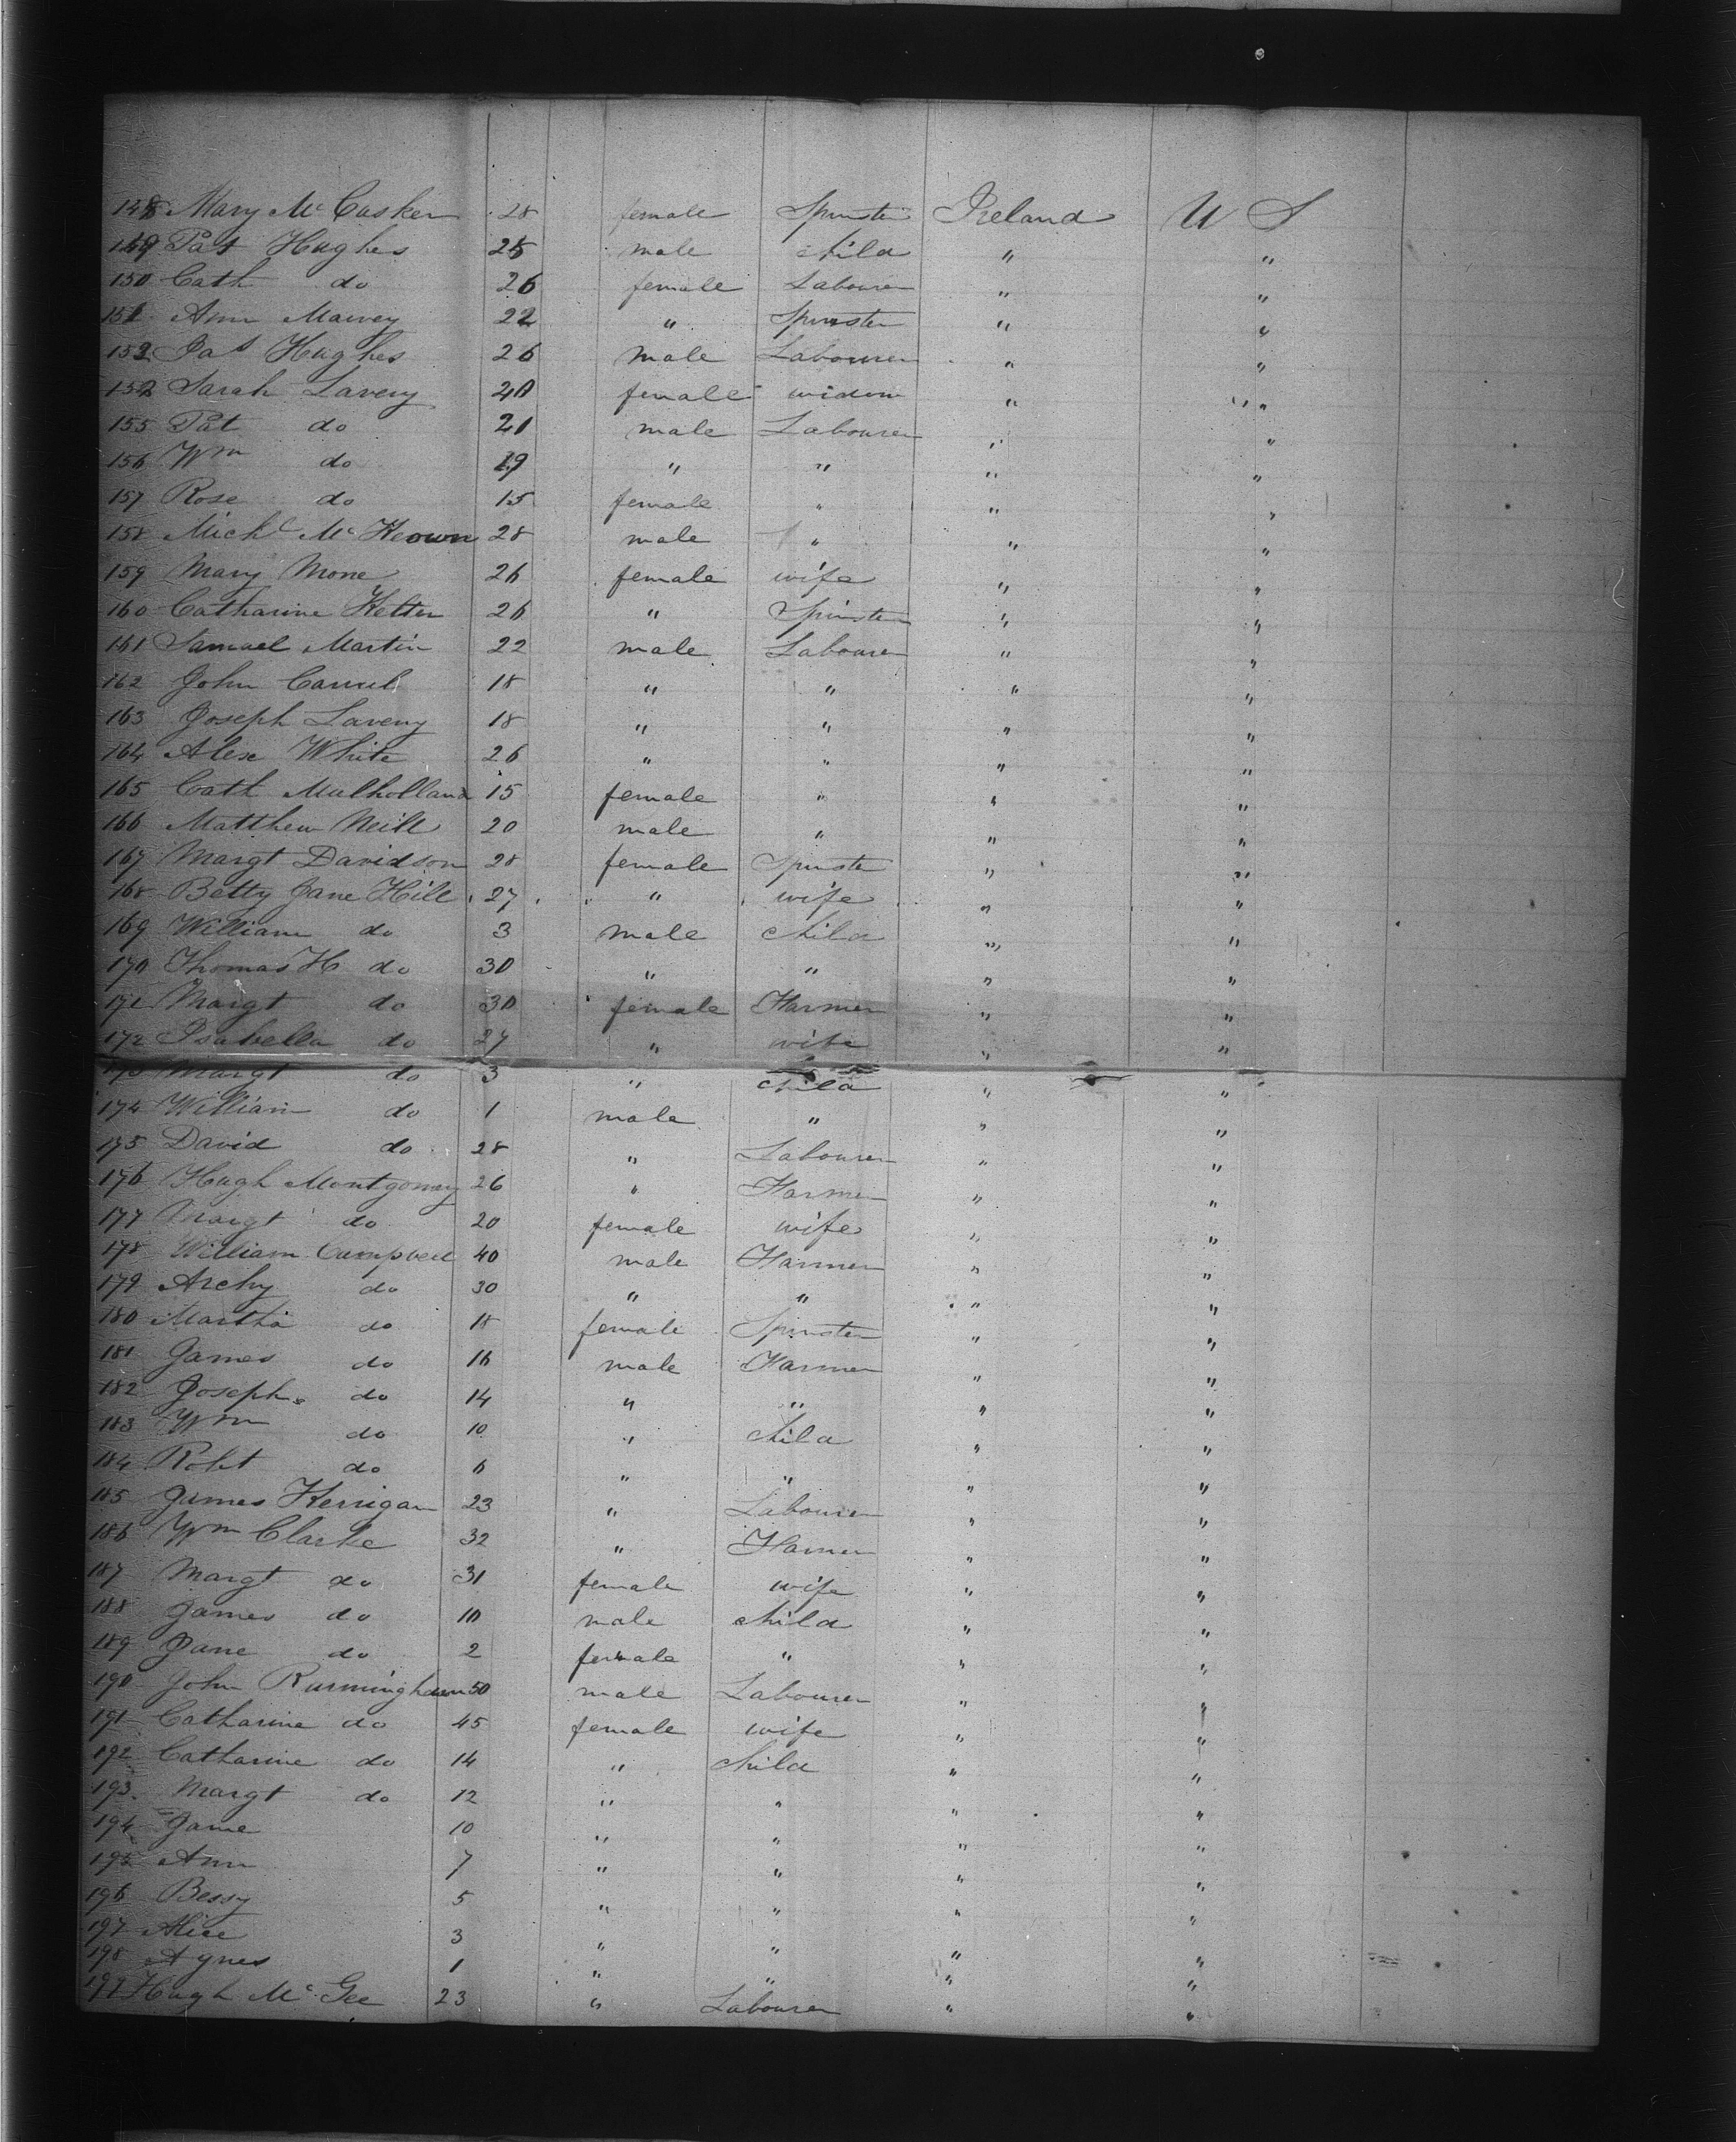 148 Mary McCasker 28 female Spinster Ireland U S
149 Pat Hughes 25 male child " "
150 Cath do 26 female Labourer " "
151 Ann 22 " Spinster " "
152 Jas Hughes 26 male Labourer " "
152 Sarah Lavery 40 female widow " "
155 Pat do 21 male Labourer " "
156 Wm do 19 " " " "
157 Rose do 15 female " " "
158 Michl McKeown 28 male " " "
159 Mary Mone 26 female wife " "
160 Catharine 26 " Spinster " "
161 Samuel Martin 22 male Labourer " "
162 John 18 " " " "
163 Joseph Lavery 18 " " " "
164 Alex White 26 " " " "
165 Cath Mulholland 15 female " " "
166 Matthew Neill 20 male " " "
167 Margt Davidson 28 female Spinster " "
168 Betty Jane Hill 27 " wife " "
169 William do 3 male child " "
170 Thomas H do 30 " " " "
171 Margt do 30 female Farmer " "
172 Isabella do 27 " wife " "
173 Margt do 3 " child " "
174 William do 1 male " " "
175 David do 28 " Labourer " "
176 Hugh Montgomery 26 " Farmer " "
177 Margt do 20 female wife " "
178 William Campbell 40 male Farmer " "
179 Archy do 30 " " " "
180 Martha do 18 female Spinster " "
181 James do 16 male Farmer " "
182 Joseph do 14 " " " "
183 Wm do 10 " child " "
184 Robt do 6 " " " "
185 James Kerrigan 23 " Labourer " "
186 Wm Clarke 32 " Farmer " "
187 Margt do 31 female wife " "
188 James do 10 male child " "
189 Jane do 2 female " " "
190 John Rurmingham 50 male Labourer " "
191 Catharine do 45 female wife " "
192 Catharine do 14 " child " "
193 Margt do 12 " " " "
194 Jane 10 " " " "
195 Ann 7 " " " "
196 Bessy 5 " " " "
197 Alice 3 " " " "
198 Agnes 1 " " " "
199 Hugh McGee 23 " Labourer " "